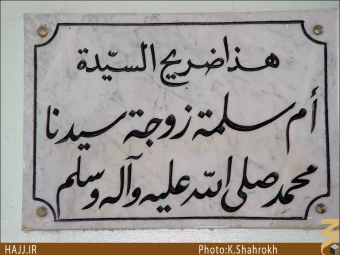 هذا ضريح السيّدة
أم سلمة زوجة سيدنا
محمد صلى الله عليه وآله وسلم
HAJJ.IR
Photo:K.Shahrokh